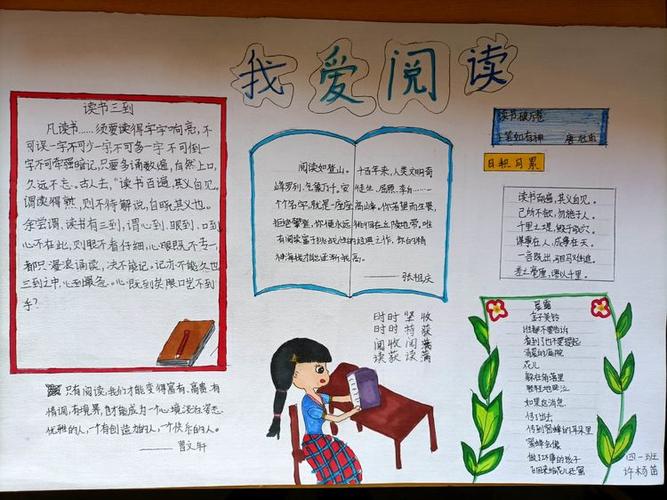 我爱阅读
读书三到
凡读书……须要读得字字响亮，不
可误一字不可少一字不可多一字不可倒一
字不可牵强暗记，只要多诵数遍，自然上口，
久远不忘。古人云，“读书百遍，其义自见。
谓读得熟，则不待解说，自晓其义也。
余尝谓，读书有三到，谓心到、眼到、口到
心不在此，则眼不看仔细，心眼既不专一，
都只漫浪诵读，决不能记，记亦不能久也
三到之中，心到最急。心既到矣眼口岂不到
乎？
阅读如登山。十百年来，人类文明奇
峰罗列，气象万千。
个名字，就是一座座高山峰。你渴望而生畏，
张祖庆
读书破万卷
下笔如有神
日积月累
读书百遍，其义自见。
己所不欲，勿施于人。
千里之堤，毁于蚁穴。
谋事在人，成事在天。
一言既出，驷马难追。
差之毫厘，谬以千里。
时时坚收
时时持获
阅收阅满
读获读满
金子美铃
谁都不要告诉
清晨的庭院
花儿
躲在角落里
如果这消息
传了出去
传到蜜蜂的耳朵里
蜜蜂会像
做了坏事的孩子
只有阅读，我们才能变得富有、高贵、有
情调、有境界，才能成为一心境淡泊、姿态
优雅的人，一个有创造力的人，一个快乐的人。
——曹文轩
四一班